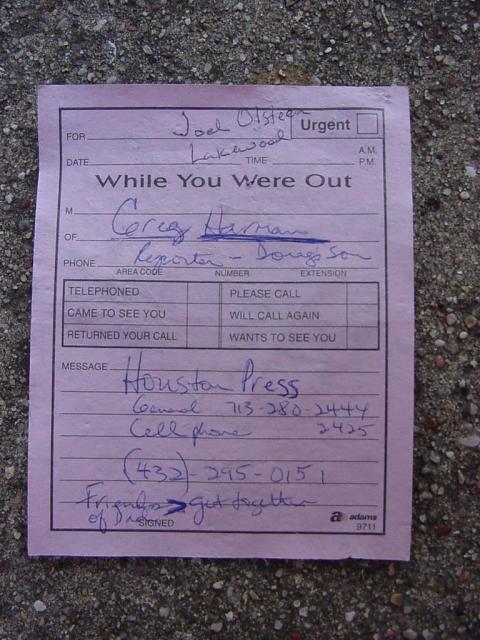 FOR Joel Olsteen Urgent
DATE Lakewood TIME A.M. P.M.
While You Were Out
M Greg Harman
OF Reporter - Doing Son
PHONE AREA CODE NUMBER EXTENSION
TELEPHONED PLEASE CALL
CAME TO SEE YOU WILL CALL AGAIN
RETURNED YOUR CALL WANTS TO SEE YOU
MESSAGE Houston Press
General 713-280-2444
Cell phone 2425
(432)-295-0151
Friends > get together
of Dad
SIGNED
adams
9711